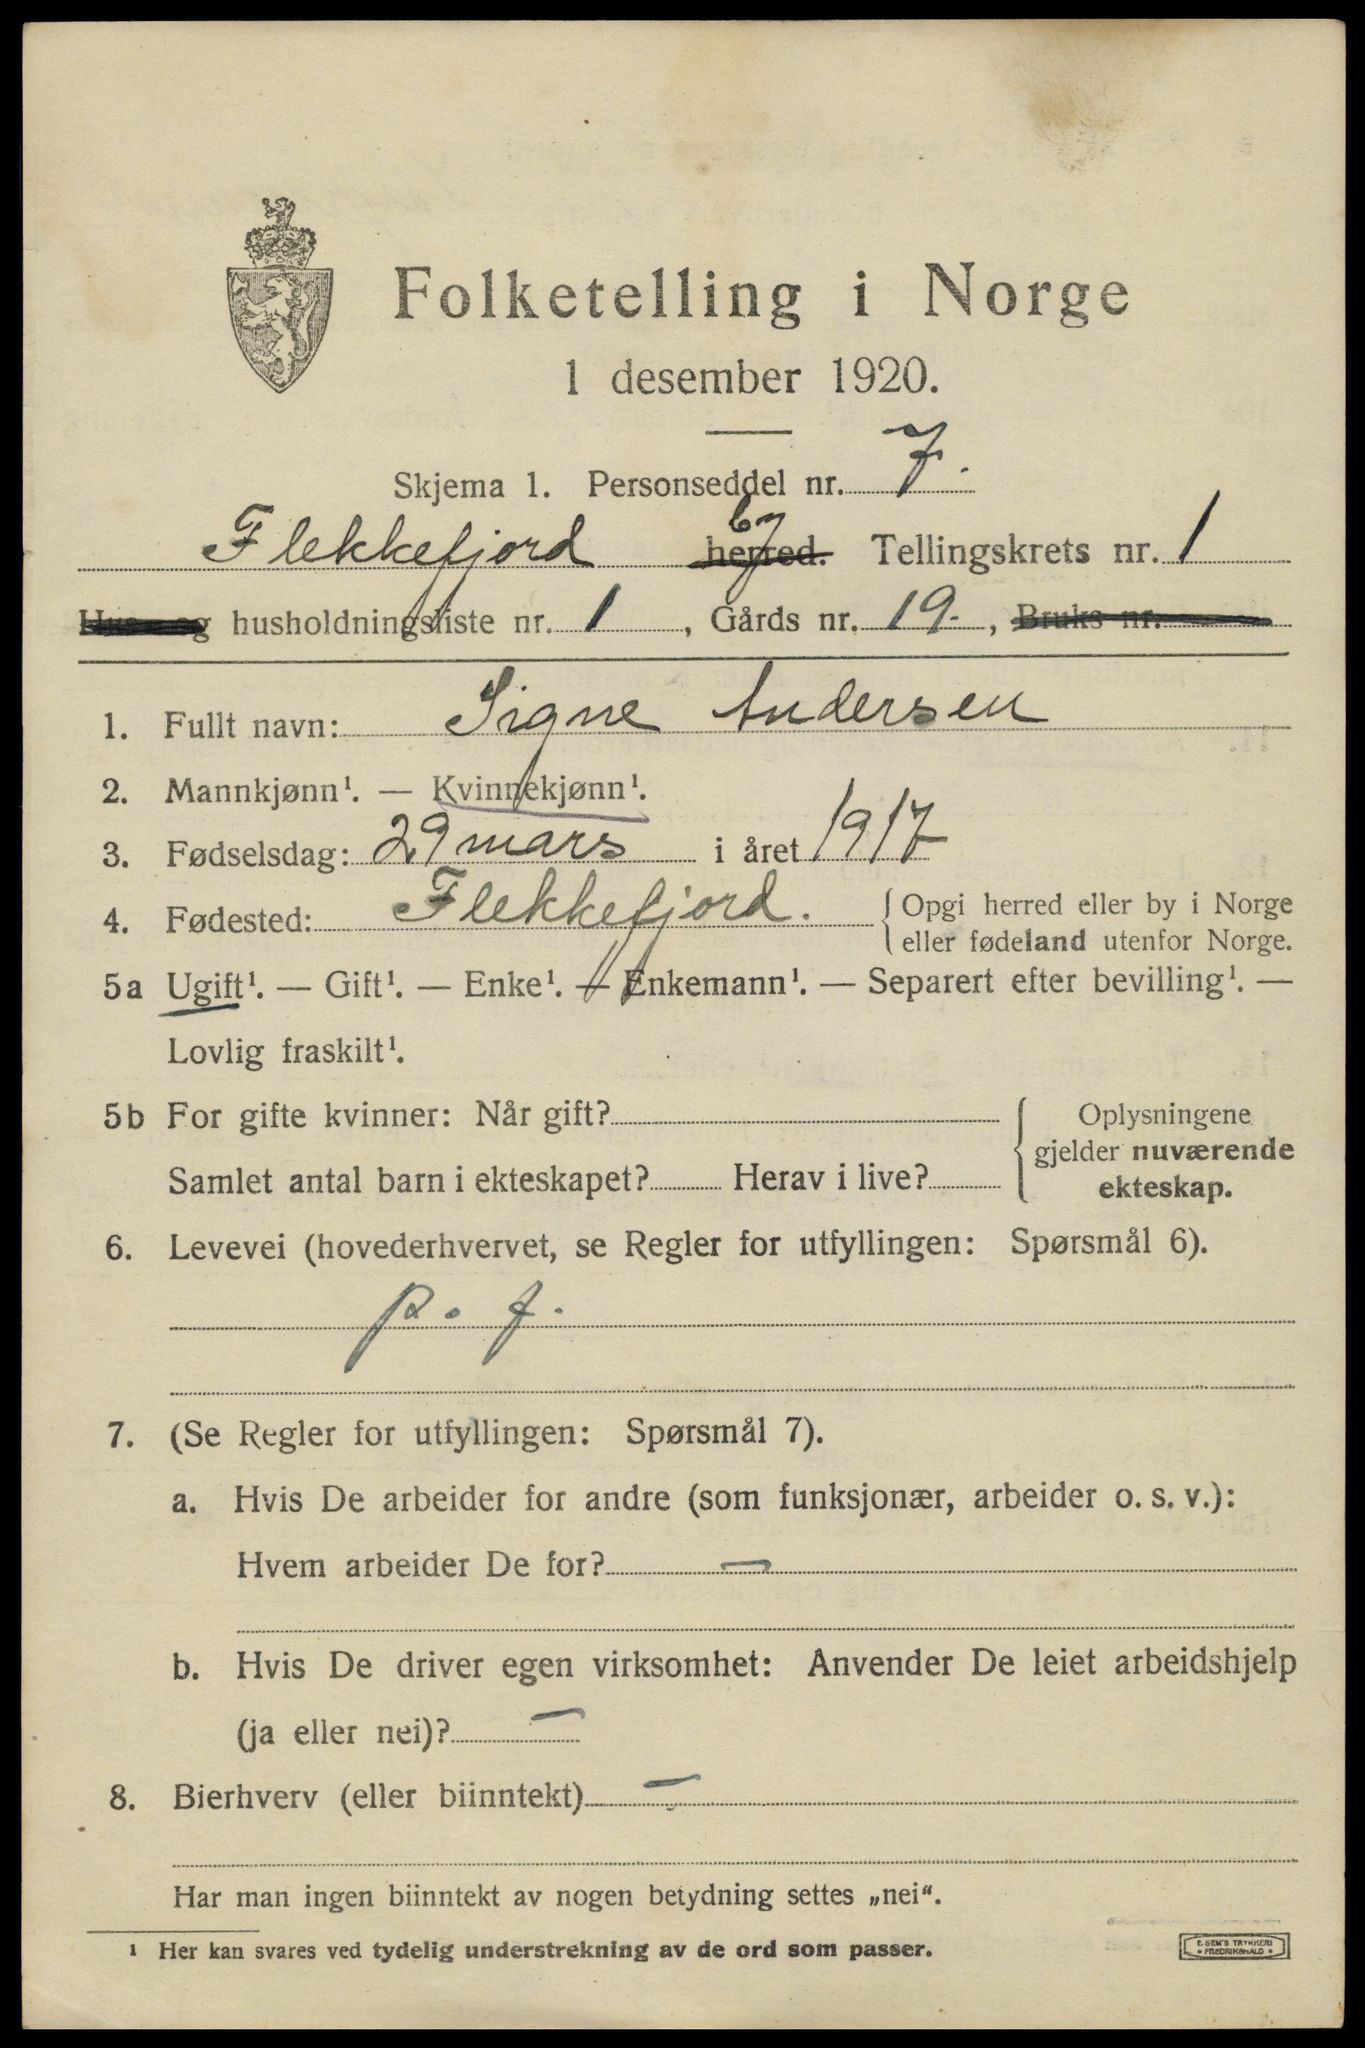 Folketelling i Norge
1 desember 1920.
Skjema 1. Personseddel nr. 7.
Flekkefjord herred. by Tellingskrets nr. 1
Hus- og husholdningsliste nr. 1, Gårds nr. 19., Bruks nr.
1. Fullt navn: Signe Andersen
2. Mannkjønn¹. — Kvinnekjønn¹.
3. Fødselsdag: 29 mars i året 1917
4. Fødested: Flekkefjord. { Opgi herred eller by i Norge
eller fødeland utenfor Norge.
5a Ugift¹. — Gift¹. — Enke¹. — Enkemann¹. — Separert efter bevilling¹. —
Lovlig fraskilt¹.
5b For gifte kvinner: Når gift?
Samlet antal barn i ekteskapet? Herav i live?
{ Oplysningene
gjelder nuværende
ekteskap.
6. Levevei (hovederhvervet, se Regler for utfyllingen: Spørsmål 6).
p. f.
7. (Se Regler for utfyllingen: Spørsmål 7).
a. Hvis De arbeider for andre (som funksjonær, arbeider o. s. v.):
Hvem arbeider De for? —
b. Hvis De driver egen virksomhet: Anvender De leiet arbeidshjelp
(ja eller nei)? —
8. Bierhverv (eller biinntekt) —
Har man ingen biinntekt av nogen betydning settes „nei“.
¹ Her kan svares ved tydelig understrekning av de ord som passer.
E. SEM'S TRYKKERI
• FREDRIKSHALD •